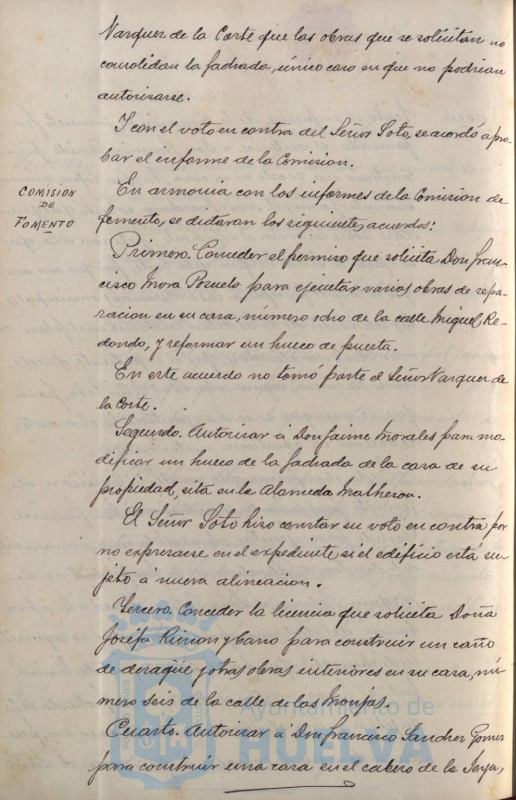 Vazquez de la Corte que las obras que se solicitan no
consolidan la fachada, único caso en que no podrian
autorizarse.
Y con el voto en contra del Señor Soto, se acordó apro-
bar el informe de la Comision.
COMISION
DE
FOMENTO
En armonia con los informes de la Comision de
fomento, se dictaron los siguientes acuerdos:
Primero. Conceder el permiso que solicita Don Fran-
cisco Mora Pozuelo para ejecutar varias obras de repa-
racion en su casa, número ocho de la calle Miguel Re-
dondo, y reformar un hueco de puerta.
En este acuerdo no tomó parte el Señor Vazquez de
la Corte.
Segundo. Autorizar á Don Jaime Morales para mo-
dificar un hueco de la fachada de la casa de su
propiedad, sita en la Alameda Matheson.
El Señor Soto hizo constar su voto en contra por
no expresarse en el expediente si el edificio está su-
jeto á nueva alineacion.
Tercero. Conceder la licencia que solicita Doña
Josefa Rincon y Cano para construir un caño
de desagüe y otras obras interiores en su casa, nú-
mero seis de la calle de las Monjas.
Cuarto. Autorizar á Don Francisco Sanchez Gomez
para construir una casa en el cabezo de la Joya,
Ayuntamiento de
HUELVA